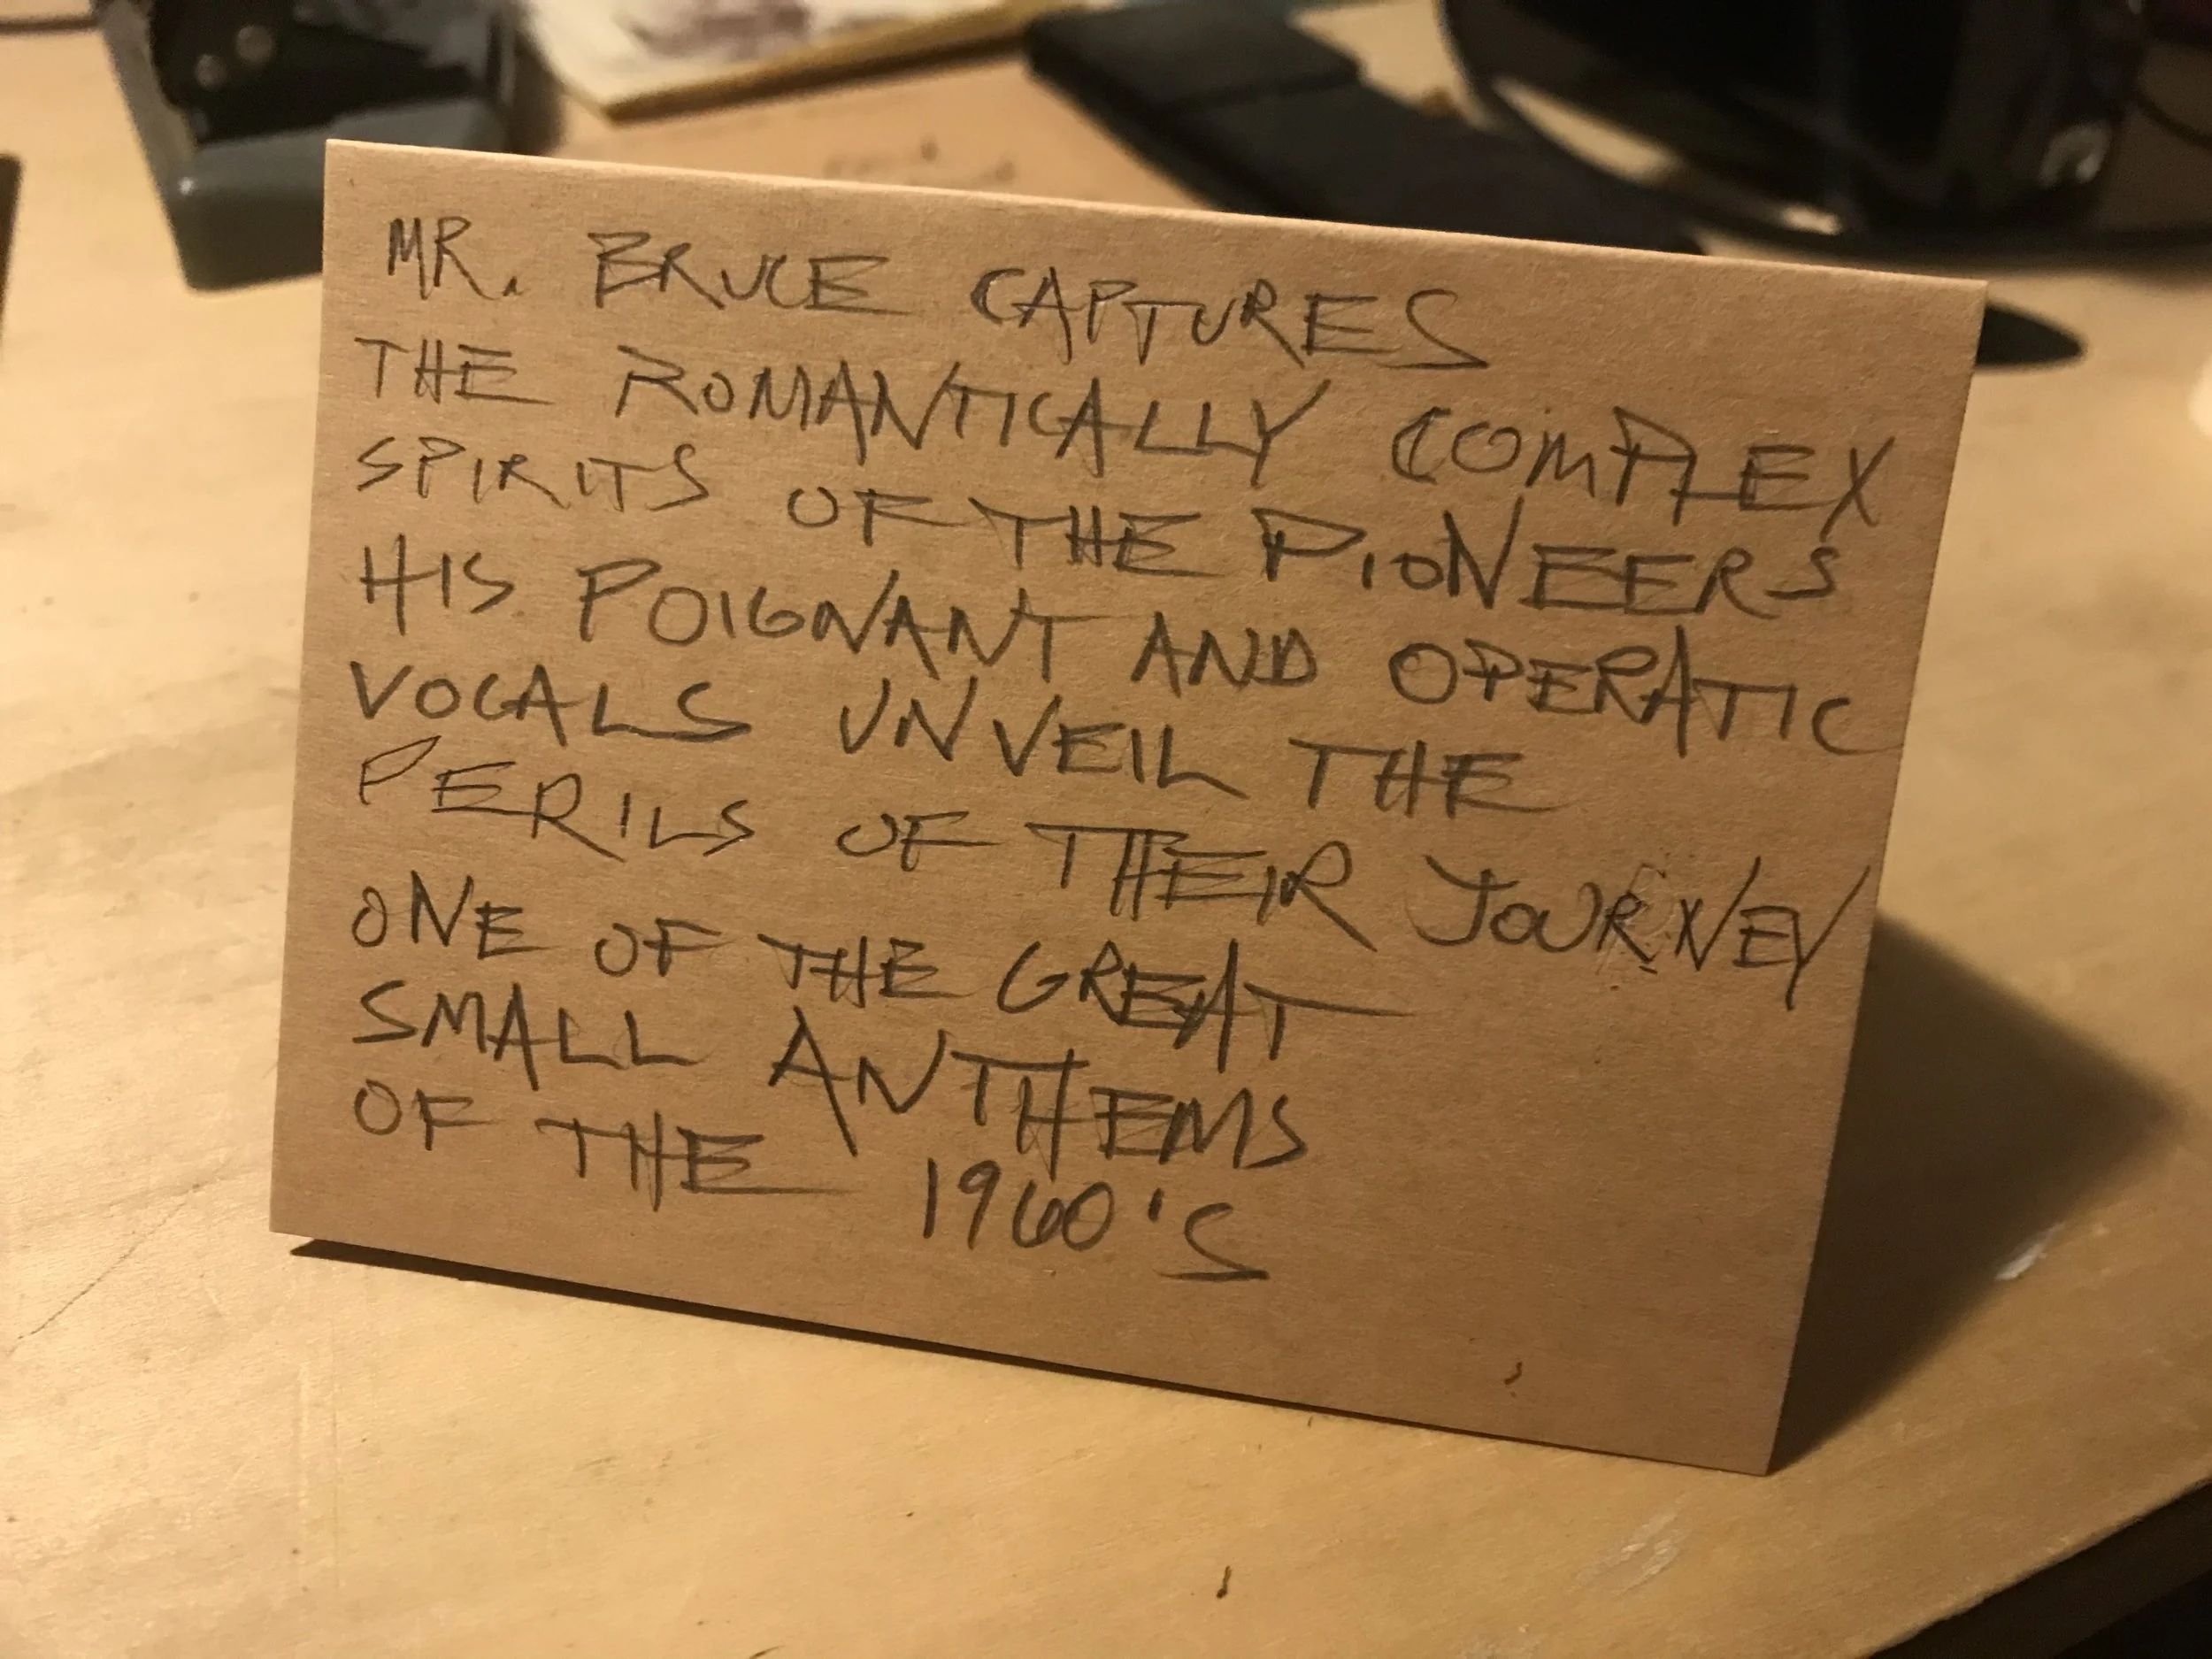 MR. BRUCE CAPTURES
THE ROMANTICALLY COMPLEX
SPIRITS OF THE PIONEERS
HIS POIGNANT AND OPERATIC
VOCALS UNVEIL THE
PERILS OF THEIR JOURNEY
ONE OF THE GREAT
SMALL ANTHEMS
OF THE 1960'S